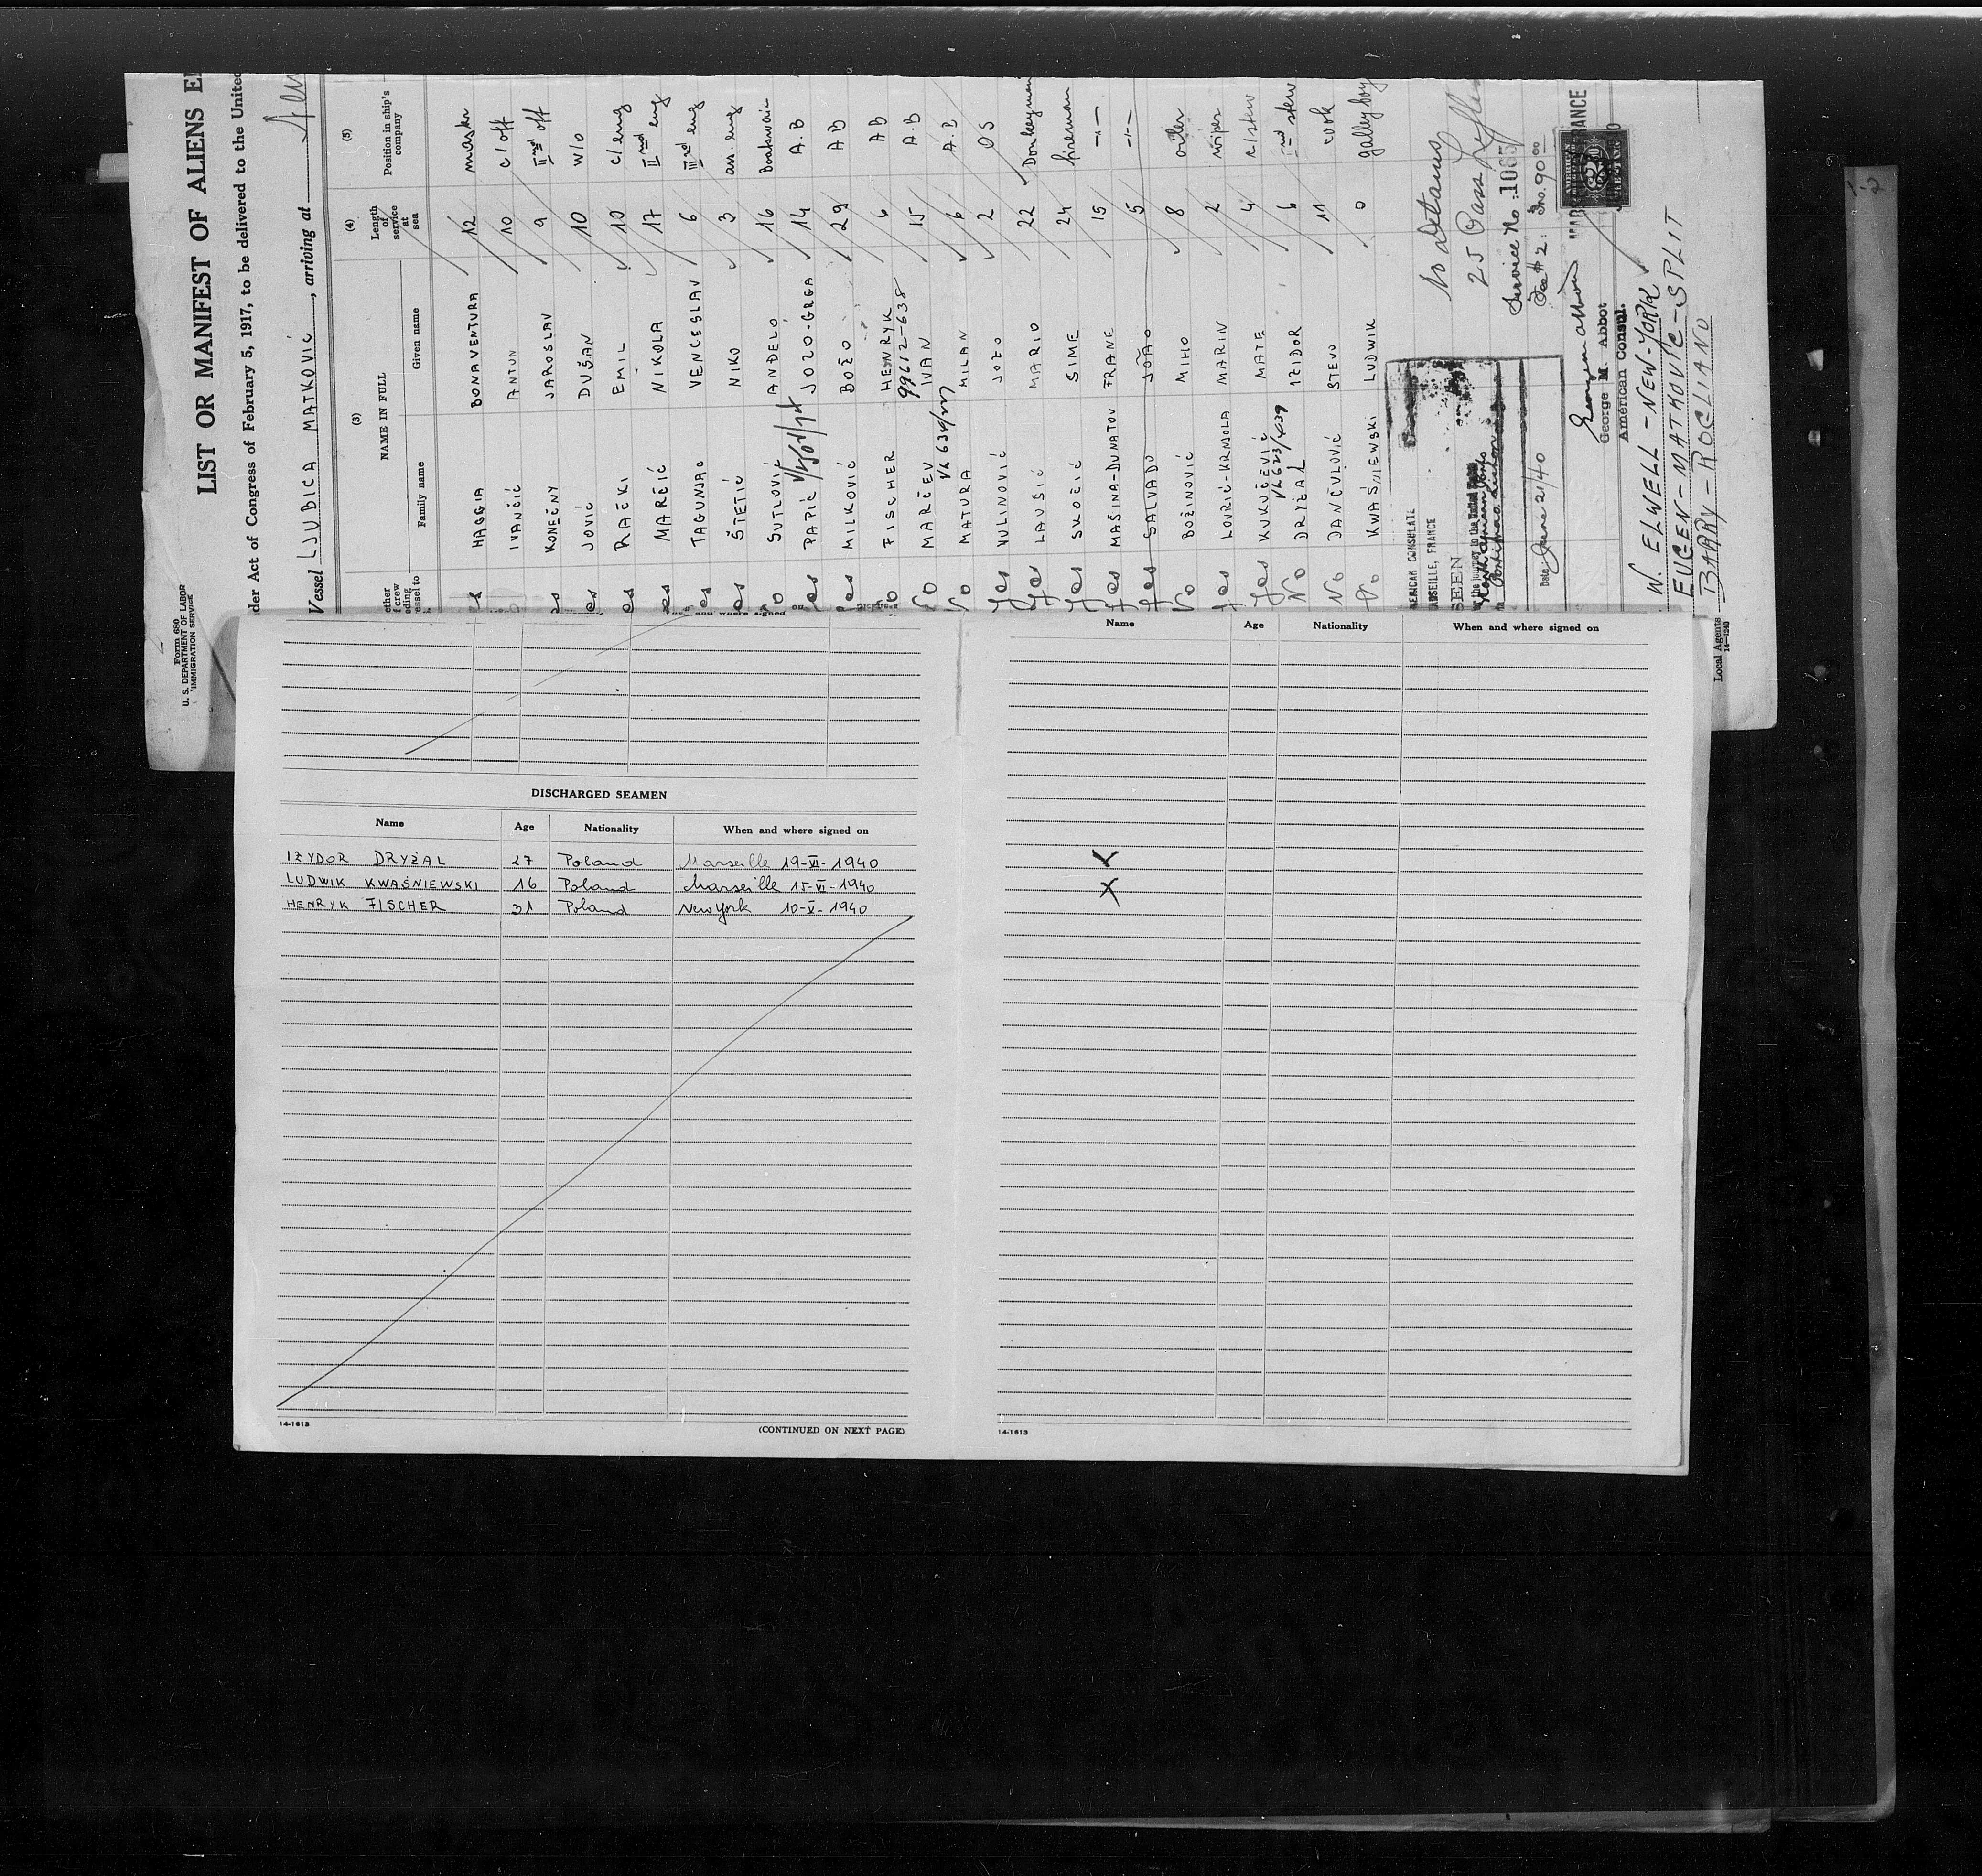 Form 680
U. S. DEPARTMENT OF LABOR
IMMIGRATION SERVICE
LIST OR MANIFEST OF ALIENS E
der Act of Congress of February 5, 1917, to be delivered to the United
Vessel LJUBICA MATKOVIĆ, arriving at
(3) (4) (5)
NAME IN FULL Length of service at sea Position in ship's company
Family name Given name
es HAGGIA BONAVENTURA 12 master
IVANČIĆ ANTUN 10 c/off
es KONEČNY JAROSLAV 9 IInd off
es JOVIĆ DUŠAN 10 w/o
es RAČKI EMIL 10 c/eng
es MARČIĆ NIKOLA 17 IInd eng
es TAGUNJAC VENCESLAV 6 IIIrd eng
es ŠTETIĆ NIKO 3 ass. eng
o SUTLOVIĆ ANĐELO 16 Boatswain
es PAPIĆ JOZO-GRGA 14 A.B
es MILKOVIĆ BOŽO 29 AB
o FISCHER HENRYK 6 AB
99612-638
No MARČEV IVAN 15 A.B
V6634/
No MATURA MILAN 6 A.B
Yes NULINOVIĆ JOZO 2 OS
Yes LAUŠIĆ MARIO 22 Donkeyman
Yes SKOČIĆ SIME 24 fireman
Yes MAŠINA-DUNATOV FRANE 15 -"-
Yes SALVADO JOÃO 5 -"-
No BOŽINOVIĆ MIHO 8 oiler
Yes LOVRIĆ-KRNJOLA MARIN 2 wiper
Yes KUKUČEVIĆ MATE 4 c/stew
V6623/439
No DRYŻAL IZIDOR 6 IInd stew
No DANČULOVIĆ STEVO 11 cook
No KWAŚNIEWSKI LUDWIK 0 galley boy
No detains
25 Pass
ERICAN CONSULATE
ARSEILLE, FRANCE
SEEN
Date June 21/40
Service No. 1065
Fee $2
George M. Abbot
American Consul.
W. ELWELL - NEW-YORK
EUGEN-MATKOVIĆ - SPLIT
Local Agents BARRY-ROGLIANO
14-1240
DISCHARGED SEAMEN
Name Age Nationality When and where signed on
IZYDOR DRYŻAL 27 Poland Marseille 19-VI-1940
LUDWIK KWAŚNIEWSKI 16 Poland Marseille 15-VI-1940
HENRYK FISCHER 31 Poland New York 10-X-1940
14-1613
(CONTINUED ON NEXT PAGE)
Name Age Nationality When and where signed on
X
X
14-1613